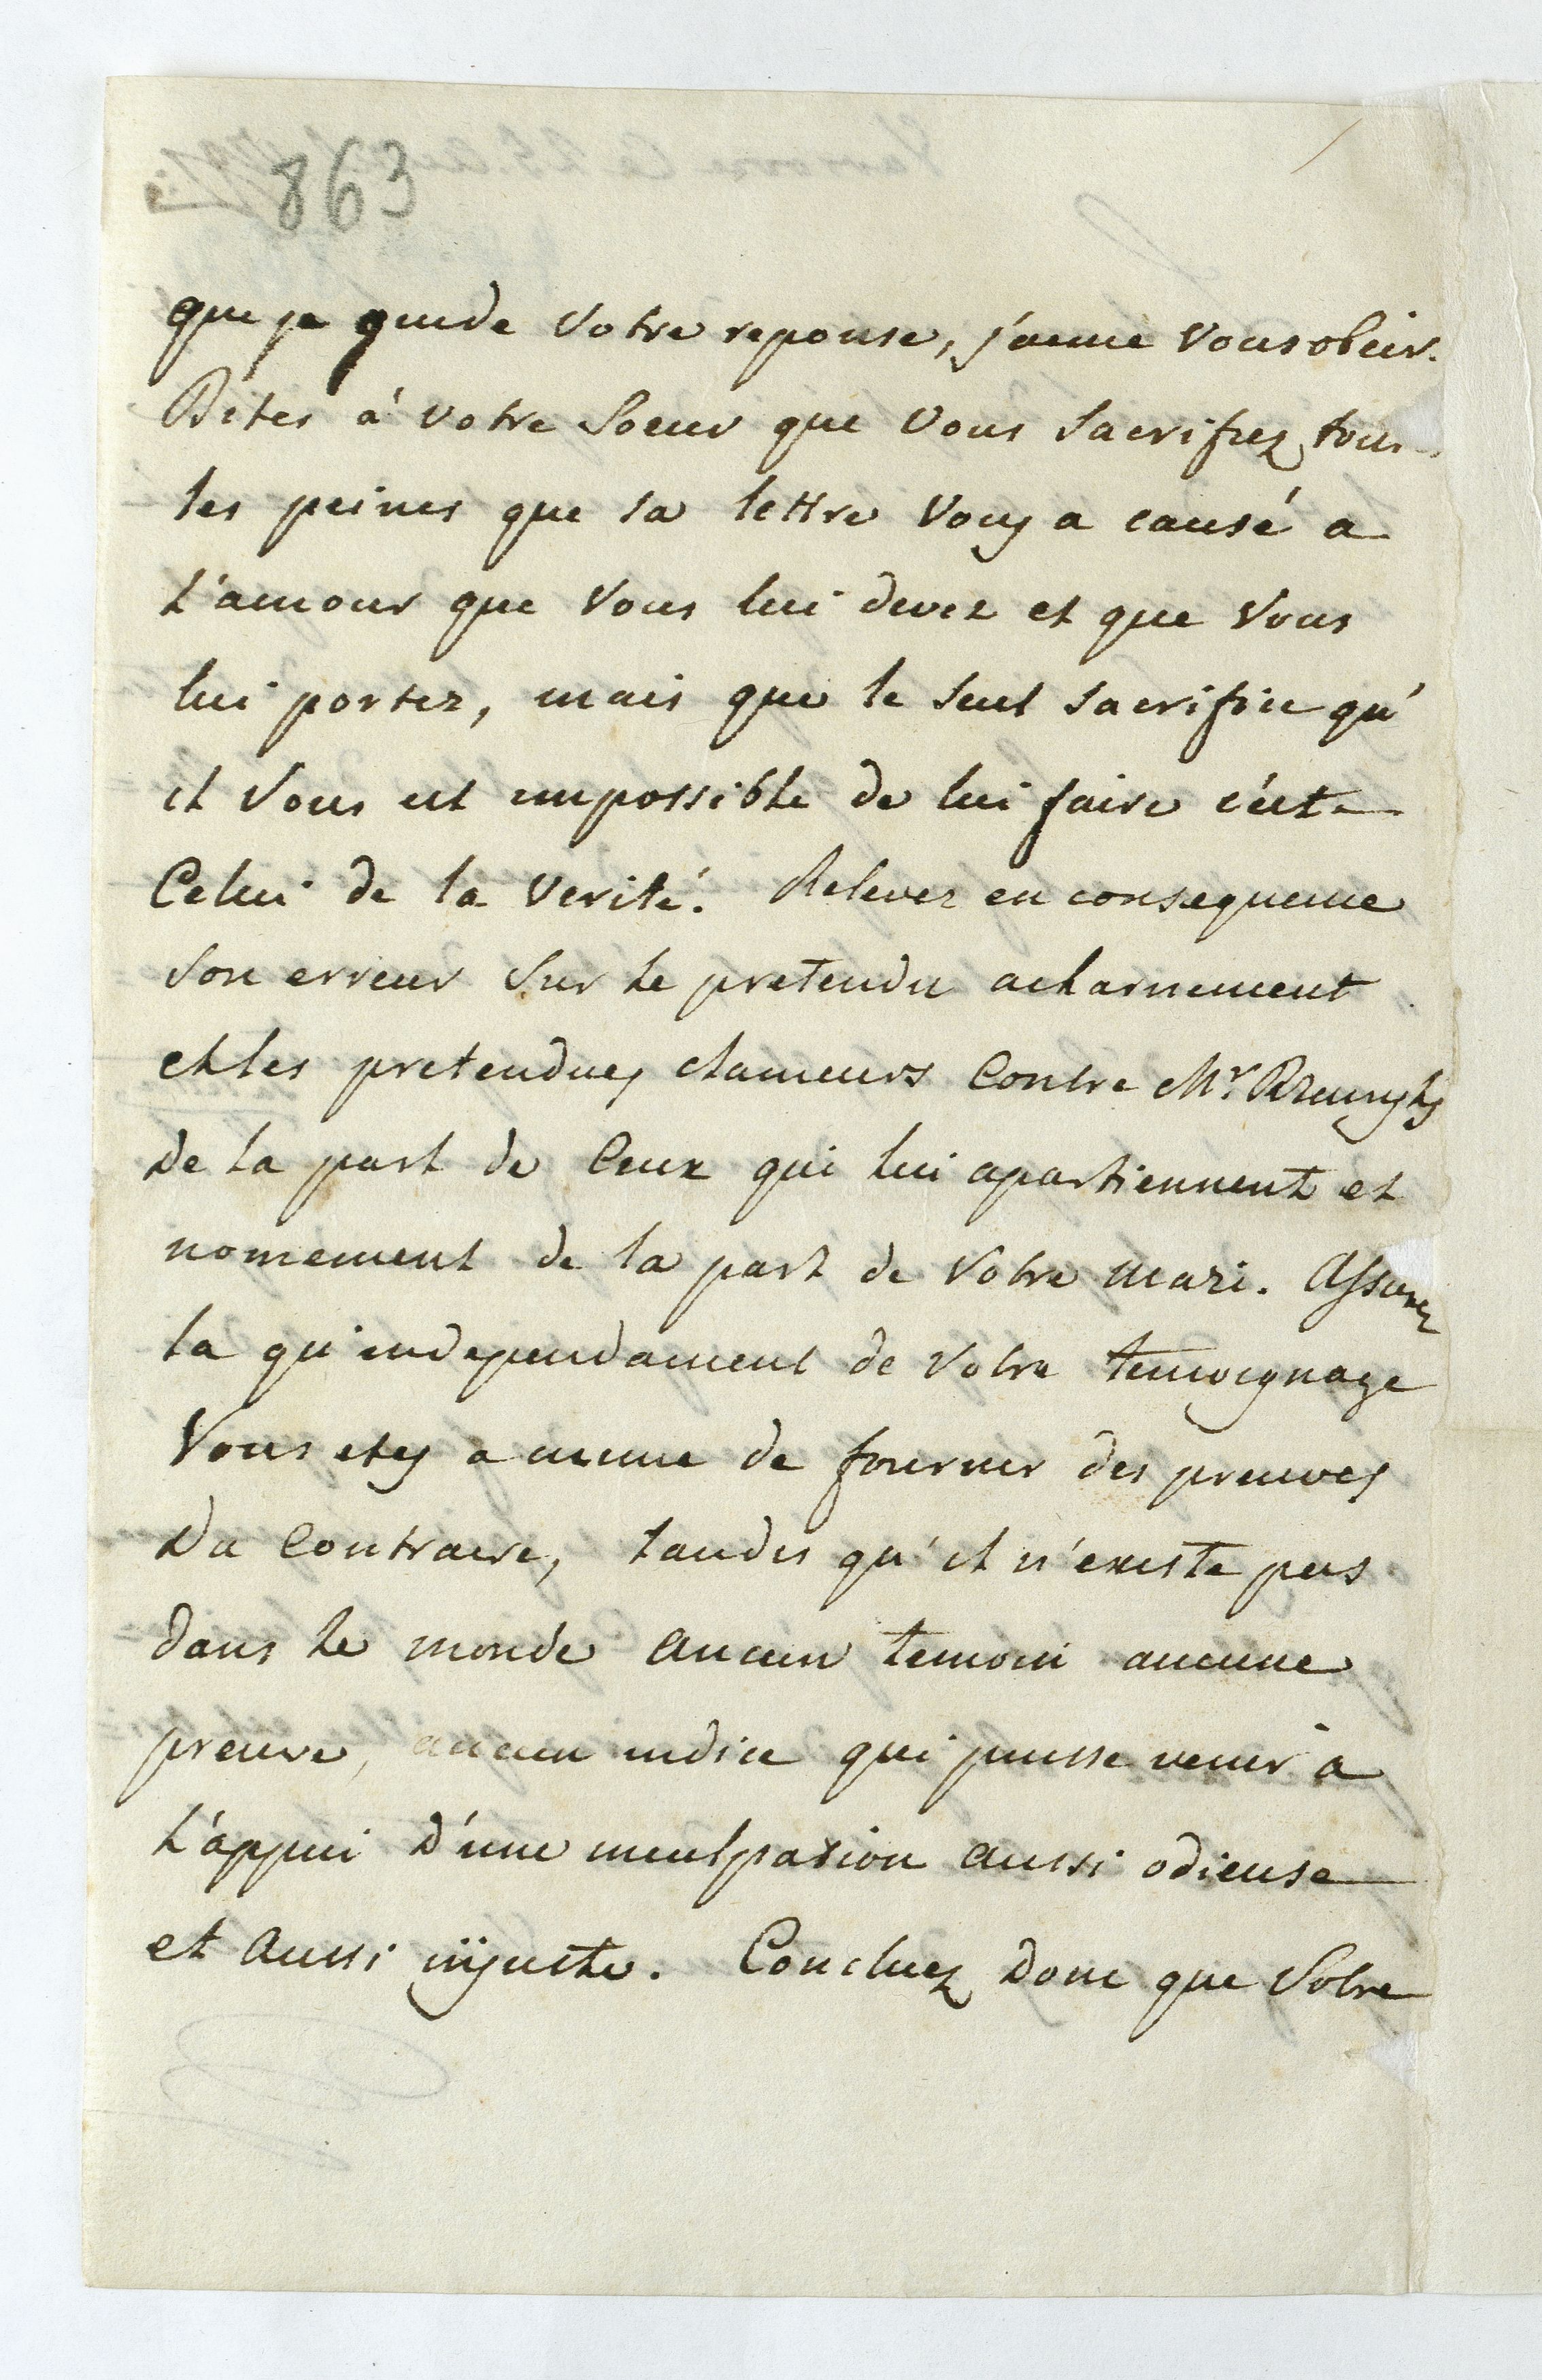 863
que je guide votre reponse, j'aime vous obeir.
Dites à votre Soeur que vous sacrifiez tous
les peines que sa lettre vous a causé a
L'amour que vous lui devez et que vous
lui portez, mais que le seul sacrifice qu'
il vous est impossible de lui faire c'est
Celui de la verité. Relevez en consequence
son erreur sur le pretendu acharnement
et les pretendues clameurs Contre Mr.
de la part de Ceux qui lui apartiennent et
nomement de la part de votre mari. Assurez
la qu'independament de votre temoignage
vous etes a meme de fournir des preuves
du Contraire, tandis qu'il n'existe pas
dans le monde aucun temoin aucune
preuve, aucun indice qui puisse venir à
L'appui d'une inculpation aussi odieuse
et aussi injuste. Concluez donc que votre